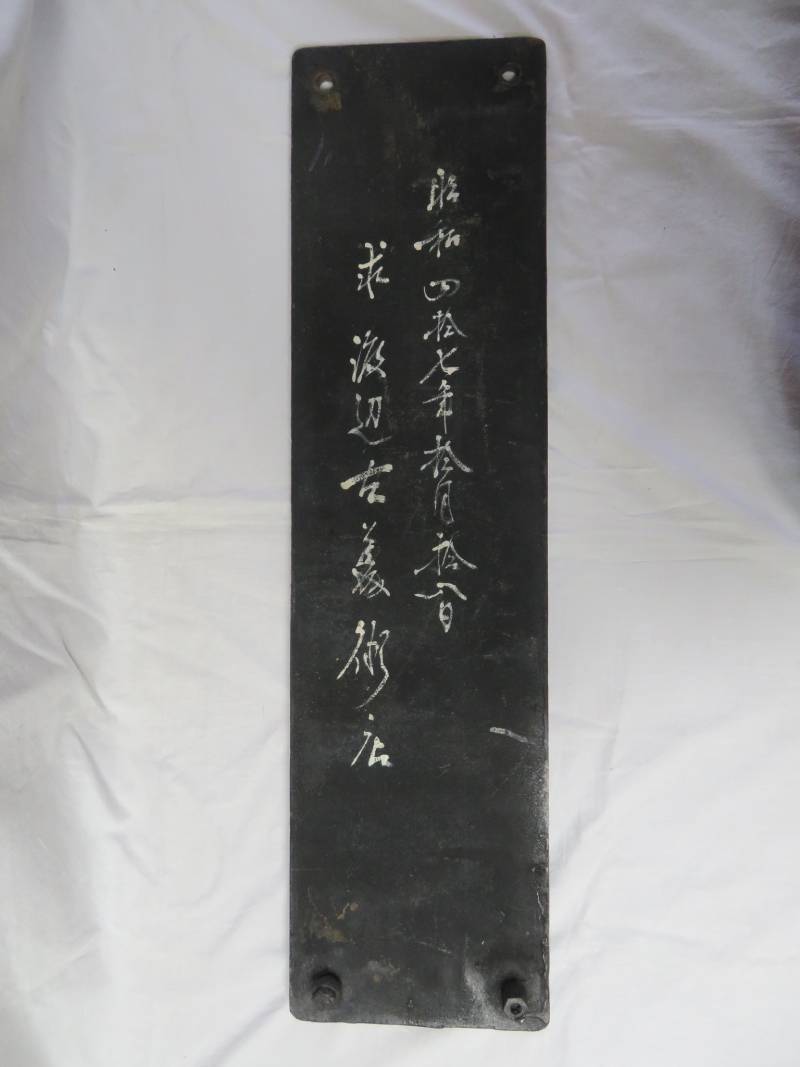 昭和四拾七年拾月拾八日
求 渡辺古美術店